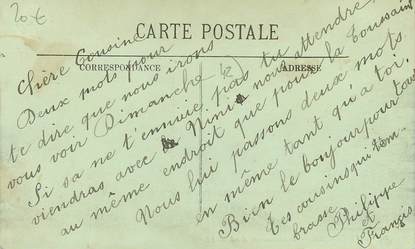 20 €
CARTE POSTALE
CORRESPONDANCE
ADRESSE
42
Chère Cousine
Deux mots pour
te dire que nous irons
vous voir Dimanche
Si sa ne t'ennuie pas tu
viendras avec Ninie nous attendre
au même endroit que pour la Toussain
Nous lui passons deux mots
en même tant qu'a toi.
Bien le bonjour pour tous
Tes cousins qui t'em
brasse
Philippe
et
François